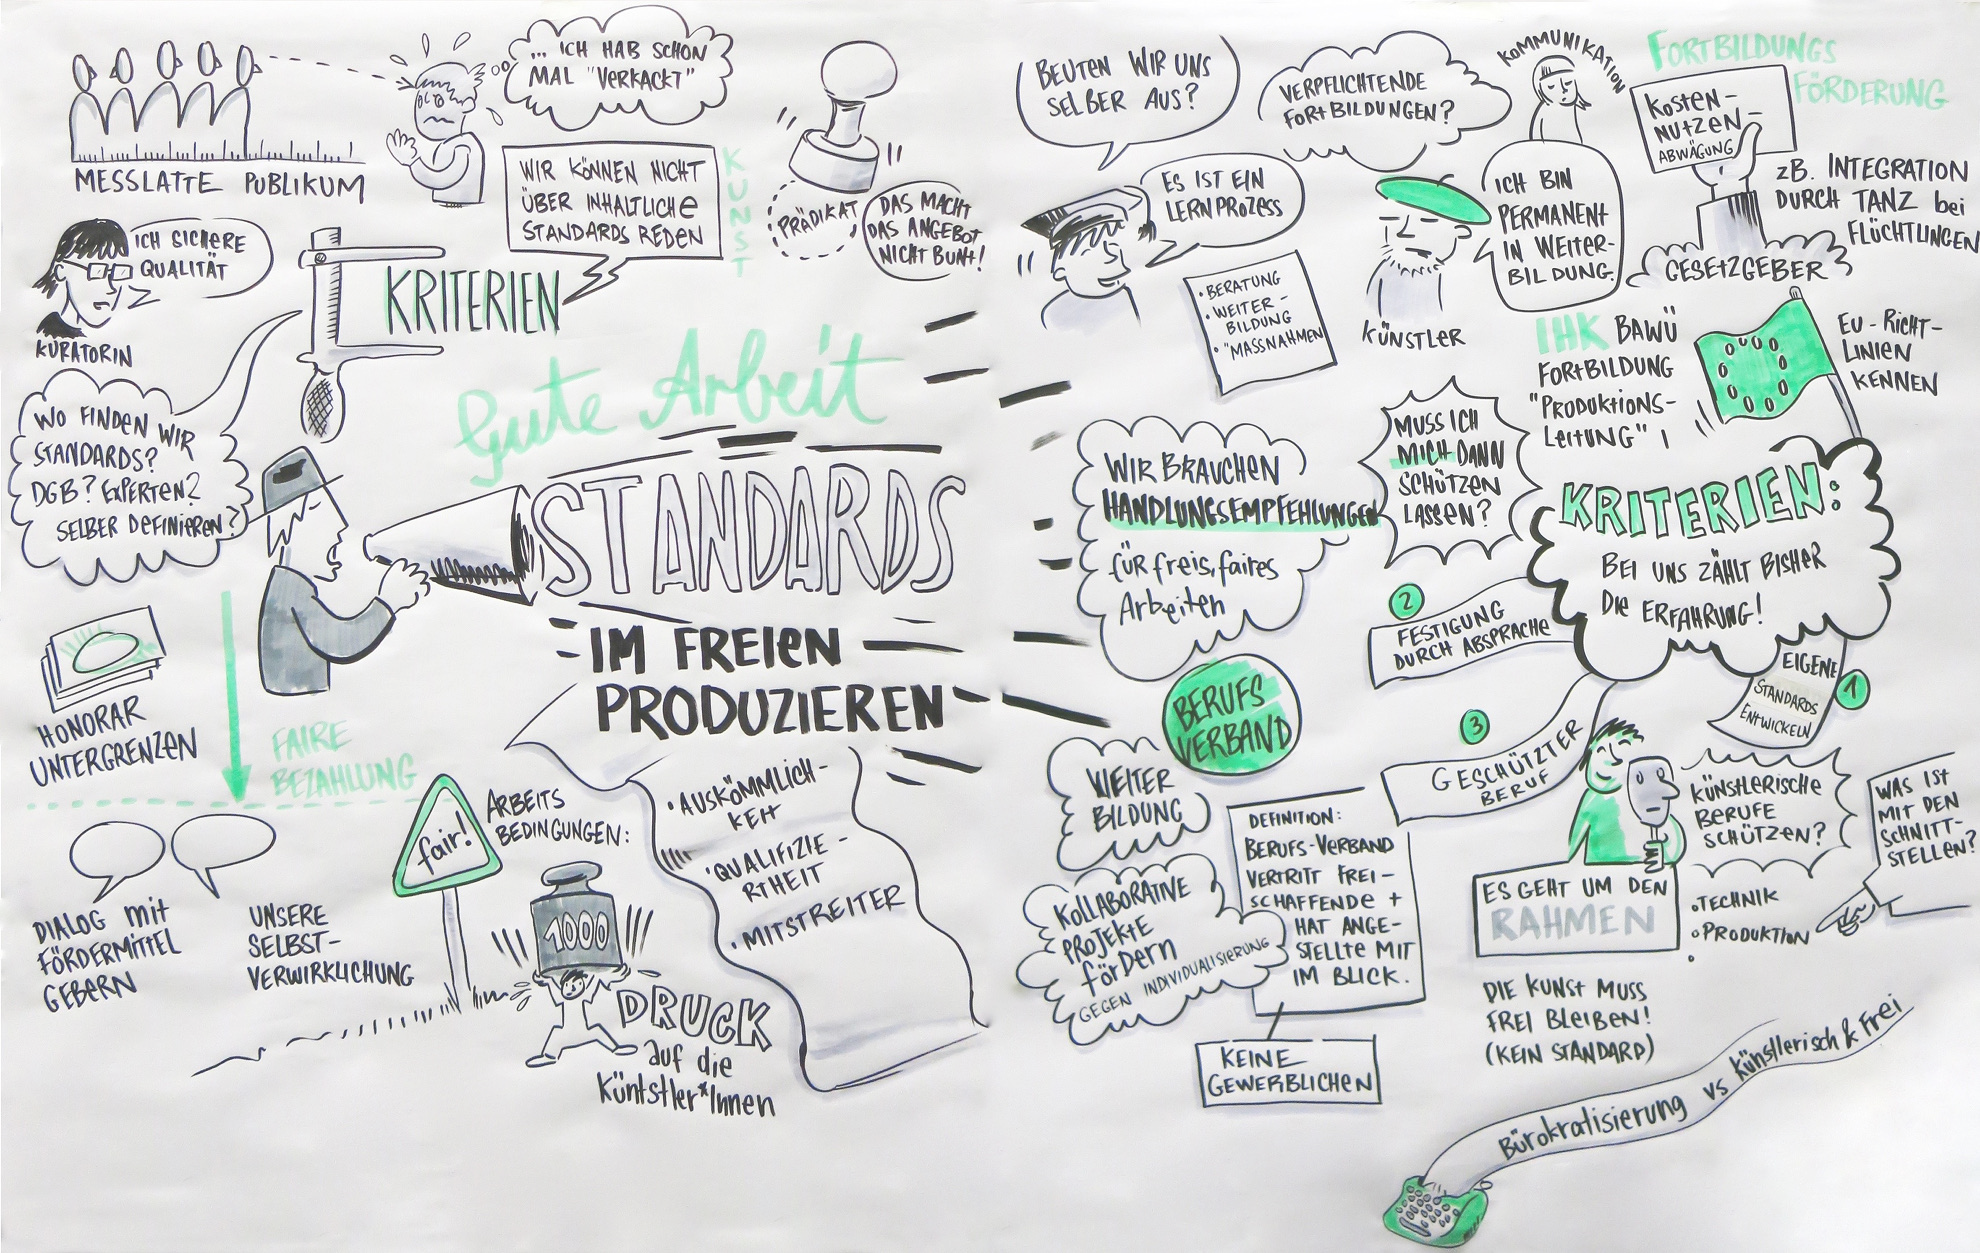 MESSLATTE PUBLIKUM
... ICH HAB SCHON
MAL "VERKACKT"
WIR KÖNNEN NICHT
ÜBER INHALTLICHE
STANDARDS REDEN
KUNST
PRÄDIKAT
DAS MACHT
DAS ANGEBOT
NICHT BUNT!
ICH SICHERE
QUALITÄT
KURATORIN
KRITERIEN
Gute Arbeit
WO FINDEN WIR
STANDARDS?
DGB? EXPERTEN?
SELBER DEFINIEREN?
STANDARDS
IM FREIEN
PRODUZIEREN
HONORAR
UNTERGRENZEN
FAIRE
BEZAHLUNG
DIALOG mit
FÖRDERMITTEL
GEBERN
UNSERE
SELBST-
VERWIRKLICHUNG
fair!
ARBEITS
BEDINGUNGEN:
1000
DRUCK
auf die
Küntstler*Innen
• AUSKÖMMLICH-
KEIT
• QUALIFIZIE-
RTHEIT
• MITSTREITER
BEUTEN WIR UNS
SELBER AUS?
ES IST EIN
LERNPROZESS
• BERATUNG
• WEITER-
BILDUNG
• "MASSNAHMEN
VERPFLICHTENDE
FORTBILDUNGEN?
KÜNSTLER
KOMMUNIKATION
ICH BIN
PERMANENT
IN WEITER-
BILDUNG.
FORTBILDUNGS
FÖRDERUNG
KOSTEN-
NUTZEN-
ABWÄGUNG
GESETZGEBER
zB. INTEGRATION
DURCH TANZ bei
FLÜCHTLINGEN
IHK BAWÜ
FORTBILDUNG
"PRODUKTIONS-
LEITUNG" !
EU-RICHT-
LINIEN
KENNEN
WIR BRAUCHEN
HANDLUNGSEMPFEHLUNGEN
für freis, faires
Arbeiten
MUSS ICH
MICH DANN
SCHÜTZEN
LASSEN?
KRITERIEN:
BEI UNS ZÄHLT BISHER
DIE ERFAHRUNG!
EIGENE
STANDARDS
ENTWICKELN
1
2
FESTIGUNG
DURCH ABSPRACHE
3
GESCHÜTZTER
BERUF
BERUFS
VERBAND
WEITER
BILDUNG
KOLLABORATIVE
PROJEKTE
fördern
GEGEN INDIVIDUALISIERUNG
DEFINITION:
BERUFS-VERBAND
VERTRITT FREI-
SCHAFFENDE +
HAT ANGE-
STELLTE MIT
IM BLICK.
KEINE
GEWERBLICHEN
KÜNSTLERISCHE
BERUFE
SCHÜTZEN?
WAS IST
MIT DEN
SCHNITT-
STELLEN?
ES GEHT UM DEN
RAHMEN
• TECHNIK
• PRODUKTION
•
DIE KUNST MUSS
FREI BLEIBEN!
(KEIN STANDARD)
Bürokratisierung vs Künstlerisch & Frei